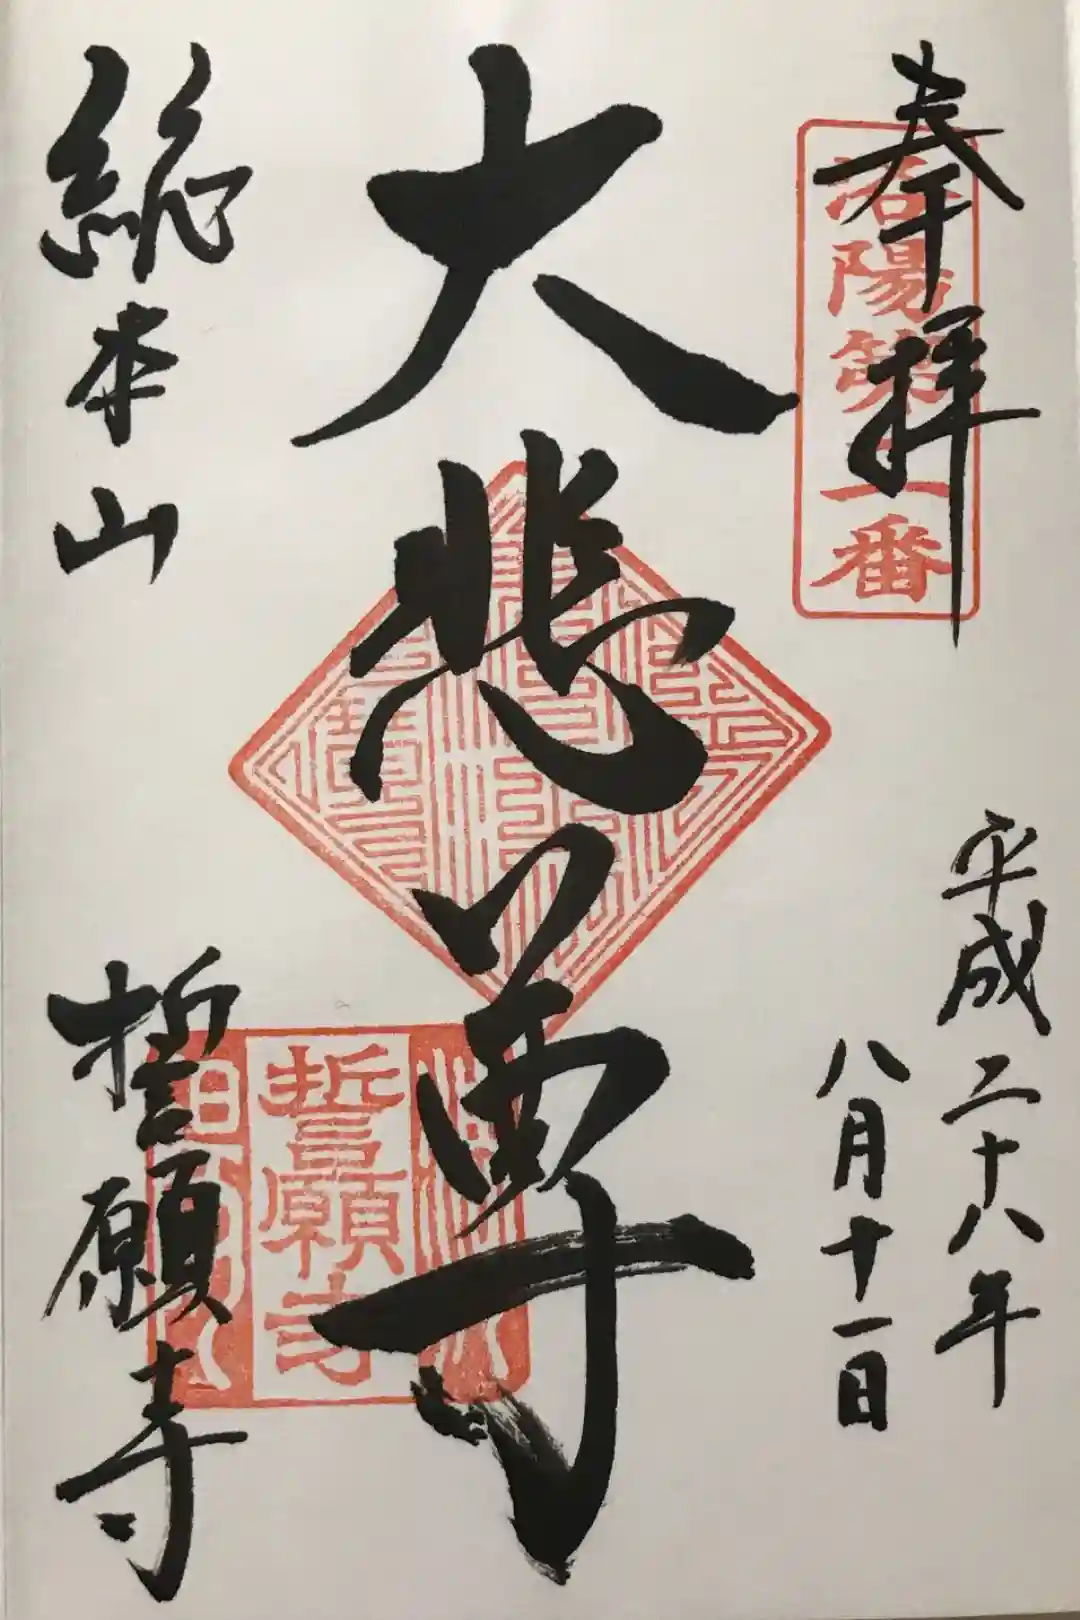 奉拝
洛陽第二番
平成二十八年
八月十一日
大悲尊
総本山
誓願寺
誓願寺